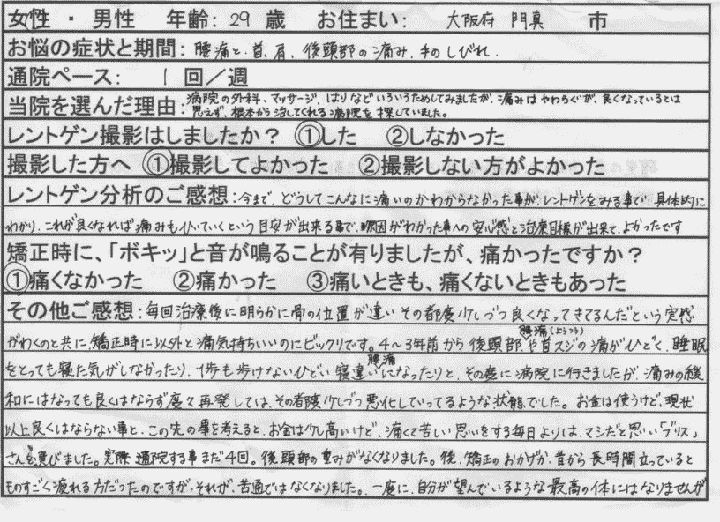 女性 ・ 男性 年齢: 29 歳 お住まい: 大阪府 門真 市
お悩の症状と期間: 腰痛と、首、肩、後頭部の痛み、手のしびれ。
通院ペース: 1 回／週
当院を選んだ理由: 病院の外科、マッサージ、はりなどいろいろためしてみましたが、痛みはやわらぐが、良くなっているとは
思えず、根本から治してくれる病院を探していました。
レントゲン撮影はしましたか? ①した ②しなかった
撮影した方へ ①撮影してよかった ②撮影しない方がよかった
レントゲン分析のご感想: 今まで、どうしてこんなに痛いのかわからなかった事が、レントゲンをみる事で、具体的に
わかり、これが良くなれば痛みも引いていくという目安が出来る事で、原因がわかった事への安心感と治療目標が出来て、よかったです
矯正時に、「ボキッ」と音が鳴ることが有りましたが、痛かったですか?
①痛くなかった ②痛かった ③痛いときも、痛くないときもあった
その他ご感想: 毎回治療後に明らかに骨の位置が違いその都度少しづつ良くなってきてるんだという実感
がわくのと共に矯正時に以外と痛気持ちいいのにビックリです。4～3年前から後頭部や首スジの痛がひどく、睡眠
をとっても寝た気がしなかったり、1歩も歩けないひどい寝違いになったりと、その度に病院に行きましたが、痛みの緩
和にはなっても良くはならず度々再発しては、その都度少しづつ悪化していってるような状態でした。お金は使うけど、現状
以上良くはならない事と、この先の事を考えると、お金は少し高いけど、痛くて苦しい思いをする毎日よりは、マシだと思い「ブリス」
さんを選びました。実際通院する事まだ4回。後頭部の重みがなくなりました。後、矯正のおかげか、昔から長時間立っていると
ものすごく疲れる方だったのですが、それが、苦通ではなくなりました。一度に、自分が望んでいるような最高の体にはなりませんが